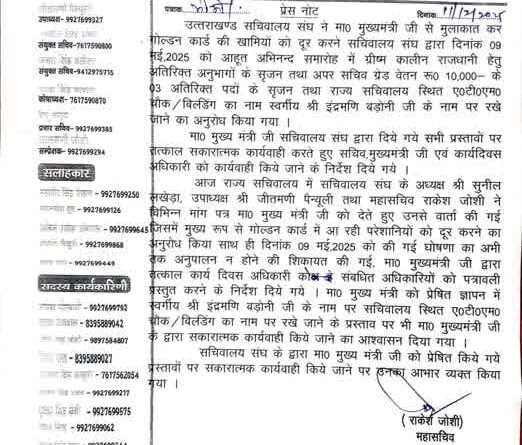 पत्रांक
प्रेस नोट
दिनांक 11/12/2025
उपाध्यक्ष- 9927699327
संयुक्त सचिव-7617590800
संयुक्त सचिव-9412975715
कोषाध्यक्ष- 7617590870
प्रचार सचिव-9927699385
सम्प्रेक्षक - 9927699294
सलाहकार
- 9927699250
- 9927699126
- 9927699645
- 9927699868
- 9927699449
सदस्य कार्यकारिणी
- 9927699792
- 8395889042
- 9897584807
- 8395889027
- 7617562054
- 9927699217
- 9927699575
- 9927699062
उत्तराखण्ड सचिवालय संघ ने मा0 मुख्यमंत्री जी से मुलाकात कर
गोल्डन कार्ड की खामियों को दूर करने सचिवालय संघ द्वारा दिनांक 09
मई,2025 को आहूत अभिनन्द समारोह में ग्रीष्म कालीन राजधानी हेतु
अतिरिक्त अनुभागों के सृजन तथा अपर सचिव ग्रेड वेतन रू0 10,000– के
03 अतिरिक्त पदों के सृजन तथा राज्य सचिवालय स्थित ए0टी0एम0
चौक/विल्डिंग का नाम स्वर्गीय श्री इन्द्रमणि बड़ोनी जी के नाम पर रखे
जाने का अनुरोध किया गया ।
मा0 मुख्य मंत्री जी सचिवालय संघ द्वारा दिये गये सभी प्रस्तावों पर
तत्काल सकारात्मक कार्यवाही करते हुए सचिव,मुख्यमंत्री जी एवं कार्यदिवस
अधिकारी को कार्यवाही किये जाने के निर्देश दिये गये ।
आज राज्य सचिवालय में सचिवालय संघ के अध्यक्ष श्री सुनील
लखेड़ा, उपाध्यक्ष श्री जीतमणी पैन्यूली तथा महासचिव राकेश जोशी ने
विभिन्न मांग पत्र मा0 मुख्य मंत्री जी को देते हुए उनसे वार्ता की गई
जिसमें मुख्य रूप से गोल्डन कार्ड में आ रही परेशानियों को दूर करने का
अनुरोध किया साथ ही दिनांक 09 मई,2025 को की गई घोषणा का अभी
तक अनुपालन न होने की शिकायत की गई, मा0 मुख्य मंत्री जी द्वारा
तत्काल कार्य दिवस अधिकारी को संबधित अधिकारियों को पत्रावली
प्रस्तुत करने के निर्देश दिये गये । मा0 मुख्य मंत्री को प्रेषित ज्ञापन में
स्वर्गीय श्री इंद्रमणि बड़ोनी जी के नाम पर सचिवालय स्थित ए0टी0एम0
चौक/विल्डिंग का नाम पर रखे जाने के प्रस्ताव पर भी मा0 मुख्यमंत्री जी
के द्वारा सकारात्मक कार्यवाही किये जाने का आश्वासन दिया गया ।
सचिवालय संघ के द्वारा मा0 मुख्य मंत्री जी को प्रेषित किये गये
प्रस्तावों पर सकारात्मक कार्यवाही किये जाने पर उनका आभार व्यक्त किया
गया ।
( राकेश जोशी )
महासचिव